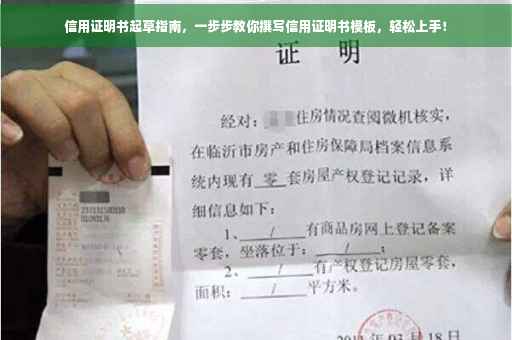 信用证明书起草指南，一步步教你撰写信用证明书模板，轻松上手！
证 明
经对：住房情况查阅微机核实，
在临沂市房产和住房保障局档案信息系
统内现有 零 套房屋产权登记记录，详
细信息如下：
1、 / 有商品房网上登记备案
零套，坐落位于： / ；
2、 / 有产权登记房屋零套，
面积： / 平方米。
03 月 18 日